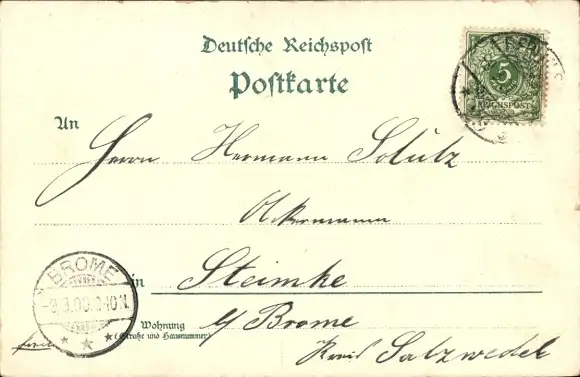 Deutsche Reichspost
Postkarte
An
Herrn Hermann Schütz
Ackermann
in Steimke
b/ Brome
Wohnung
(Straße und Hausnummer)
Kreis Salzwedel
5
REICHSPOST
BROME